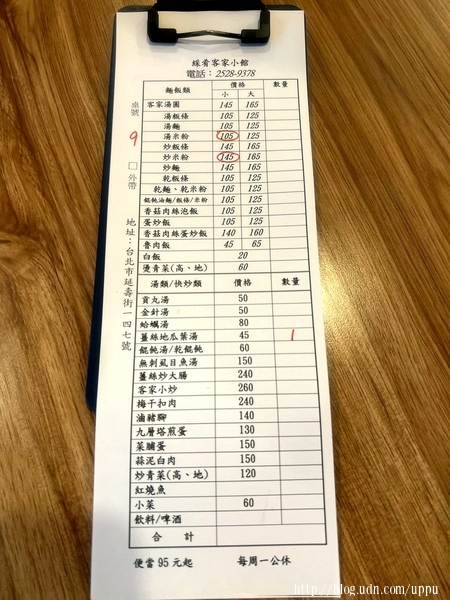 綵肴客家小館
電話：2528-9378
麵飯類 價格 數量
小 大
客家湯圓 145 165
湯粄條 105 125
湯麵 105 125
湯米粉 105 125
炒粄條 145 165
炒米粉 145 165
炒麵 145 165
乾粄條 105 125
乾麵、乾米粉 105 125
餛飩油麵/粄條/米粉 105 125
香菇肉絲泡飯 105 125
蛋炒飯 105 125
香菇肉絲蛋炒飯 140 160
魯肉飯 45 65
白飯 20
燙青菜(高、地) 60
湯類/快炒類 價格 數量
貢丸湯 50
金針湯 50
蛤蠣湯 80
薑絲地瓜葉湯 45 1
餛飩湯/乾餛飩 60
無刺虱目魚湯 150
薑絲炒大腸 240
客家小炒 260
梅干扣肉 240
滷豬腳 140
九層塔煎蛋 130
菜脯蛋 150
蒜泥白肉 150
炒青菜(高、地) 120
紅燒魚
小菜 60
飲料/啤酒
合 計
便當 95 元起 每周一公休
桌號
9
□外帶
地址：台北市延壽街一四七號
http://blog.udn.com/uppu